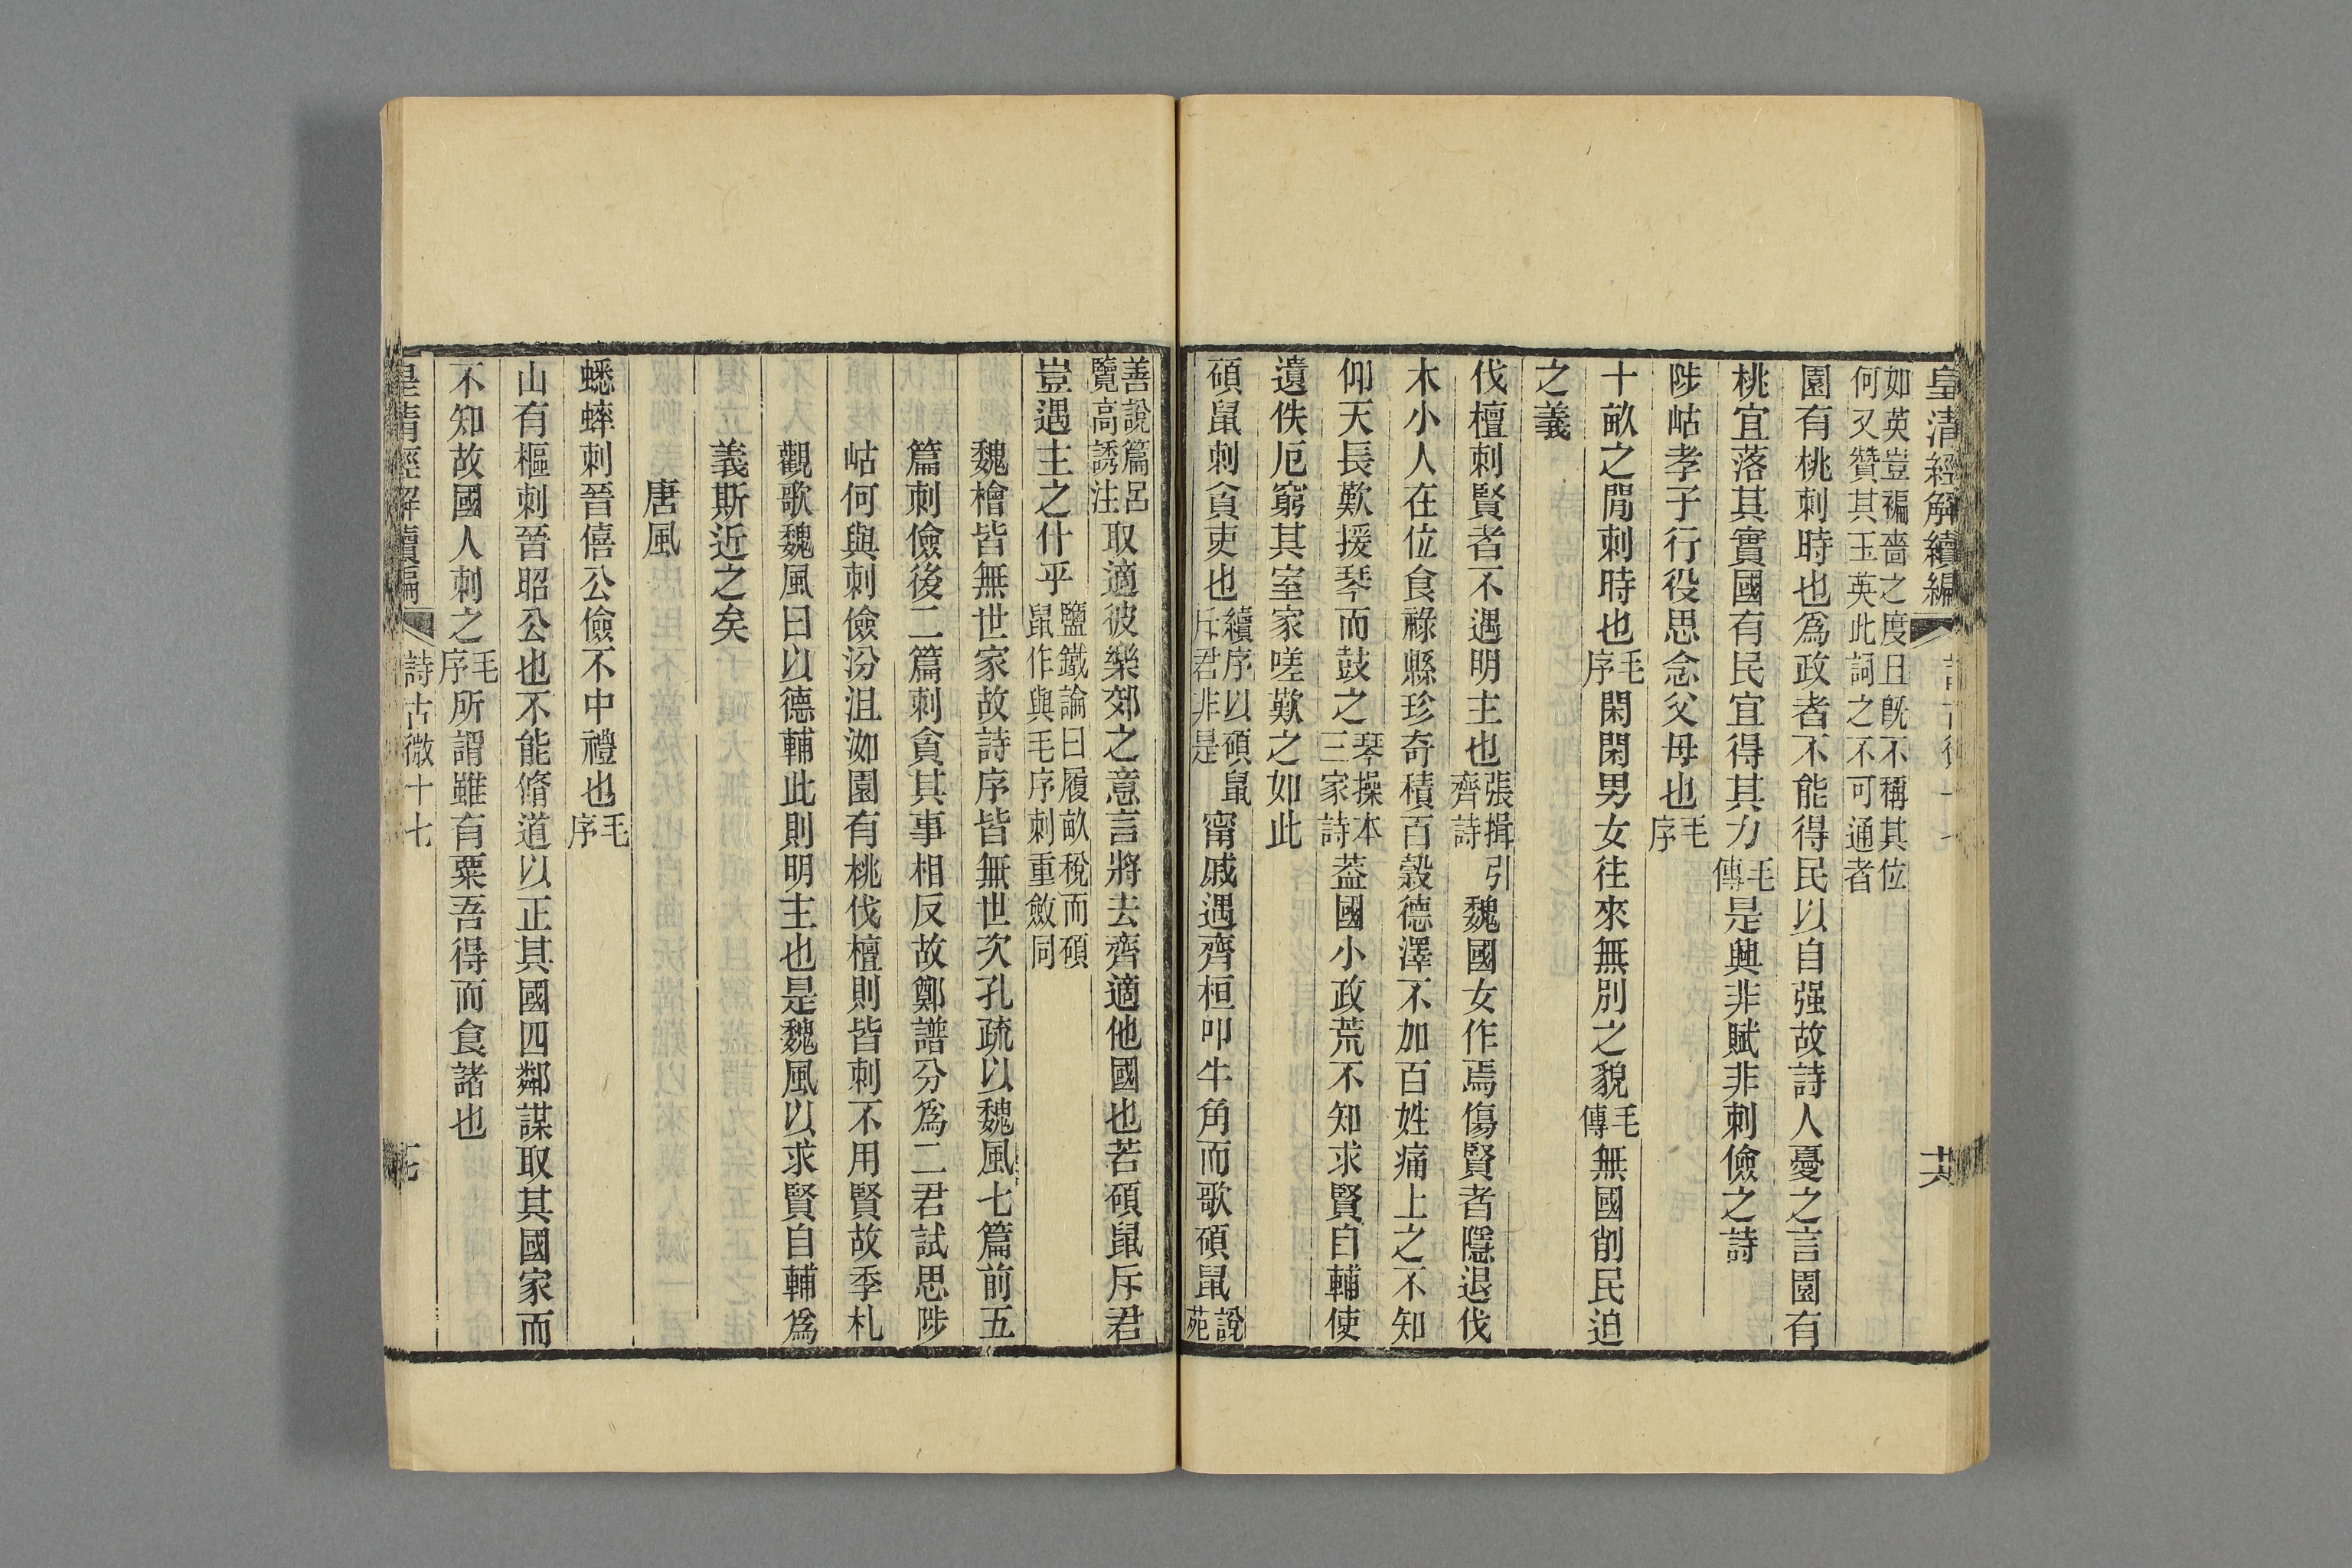 皇清經解續編
六
如英豈褊嗇之度且旣不稱其位
何又贊其玉英此詞之不可通者
園有桃刺時也爲政者不能得民以自强故詩人憂之言園有
桃宜落其實國有民宜得其力毛傳是興非賦非刺儉之詩
陟岵孝子行役思念父母也毛序
十畝之閒刺時也毛序閑閑男女往來無別之貌毛傳無國削民迫
之義
伐檀刺賢者不遇明主也張揖引齊詩魏國女作焉傷賢者隱退伐
木小人在位食祿懸珍奇積百穀德澤不加百姓痛上之不知
仰天長歎援琴而鼓之琴操本三家詩蓋國小政荒不知求賢自輔使
遺佚厄窮其室家嗟歎之如此
碩鼠刺貪吏也續序以碩鼠斥君非是甯戚遇齊桓叩牛角而歌碩鼠說苑
善說篇呂覽高誘注取適彼樂郊之意言將去齊適他國也若碩鼠斥君
豈遇主之什乎鹽鐵論曰履畝稅而碩鼠作與毛序刺重斂同
魏檜皆無世家故詩序皆無世次孔疏以魏風七篇前五
篇刺儉後二篇刺貪其事相反故鄭譜分爲二君試思陟
岵何與刺儉汾沮洳園有桃伐檀則皆刺不用賢故季札
觀歌魏風曰以德輔此則明主也是魏風以求賢自輔爲
義斯近之矣
唐風
蟋蟀刺晉僖公儉不中禮也毛序
山有樞刺晉昭公也不能脩道以正其國四鄰謀取其國家而
不知故國人刺之毛序所謂雖有粟吾得而食諸也
皇清經解續編
詩古微十七